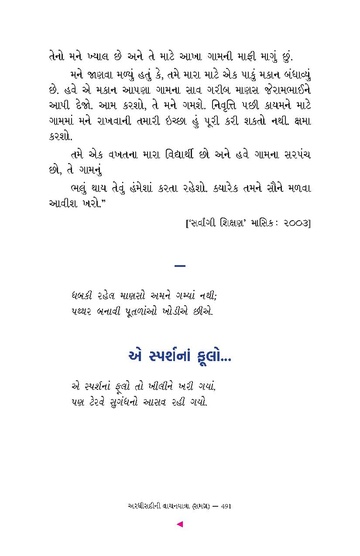 તેનો મને ખ્યાલ છે અને તે માટે આખા ગામની માફી માગું છું.
મને જાણવા મળ્યું હતું કે, તમે મારા માટે એક પાકું મકાન બંધાવ્યું
છે. હવે એ મકાન આપણા ગામના સાવ ગરીબ માણસ જેરામભાઈને
આપી દેજો. આમ કરશો, તે મને ગમશે. નિવૃત્તિ પછી કાયમને માટે
ગામમાં મને રાખવાની તમારી ઇચ્છા હું પૂરી કરી શકતો નથી. ક્ષમા
કરશો.
તમે એક વખતના મારા વિદ્યાર્થી છો અને હવે ગામના સરપંચ
છો, તે ગામનું
ભલું થાય તેવું હંમેશાં કરતા રહેશો. ક્યારેક તમને સૌને મળવા
આવીશ ખરો."
['સર્વાંગી શિક્ષણ' માસિક : ૨૦૦૩]
ધબકી રહેલ માણસો અમને ગમ્યાં નથી;
પથ્થર બનાવી પૂતળાંઓ ખોડીએ છીએ.
એ સ્પર્શનાં ફૂલો...
એ સ્પર્શનાં ફૂલો તો ખીલીને ખરી ગયાં,
પણ ટેરવે સુગંધનો આસવ રહી ગયો.
અરધીસદીની વાચનયાત્રા (સમગ્ર) — 491